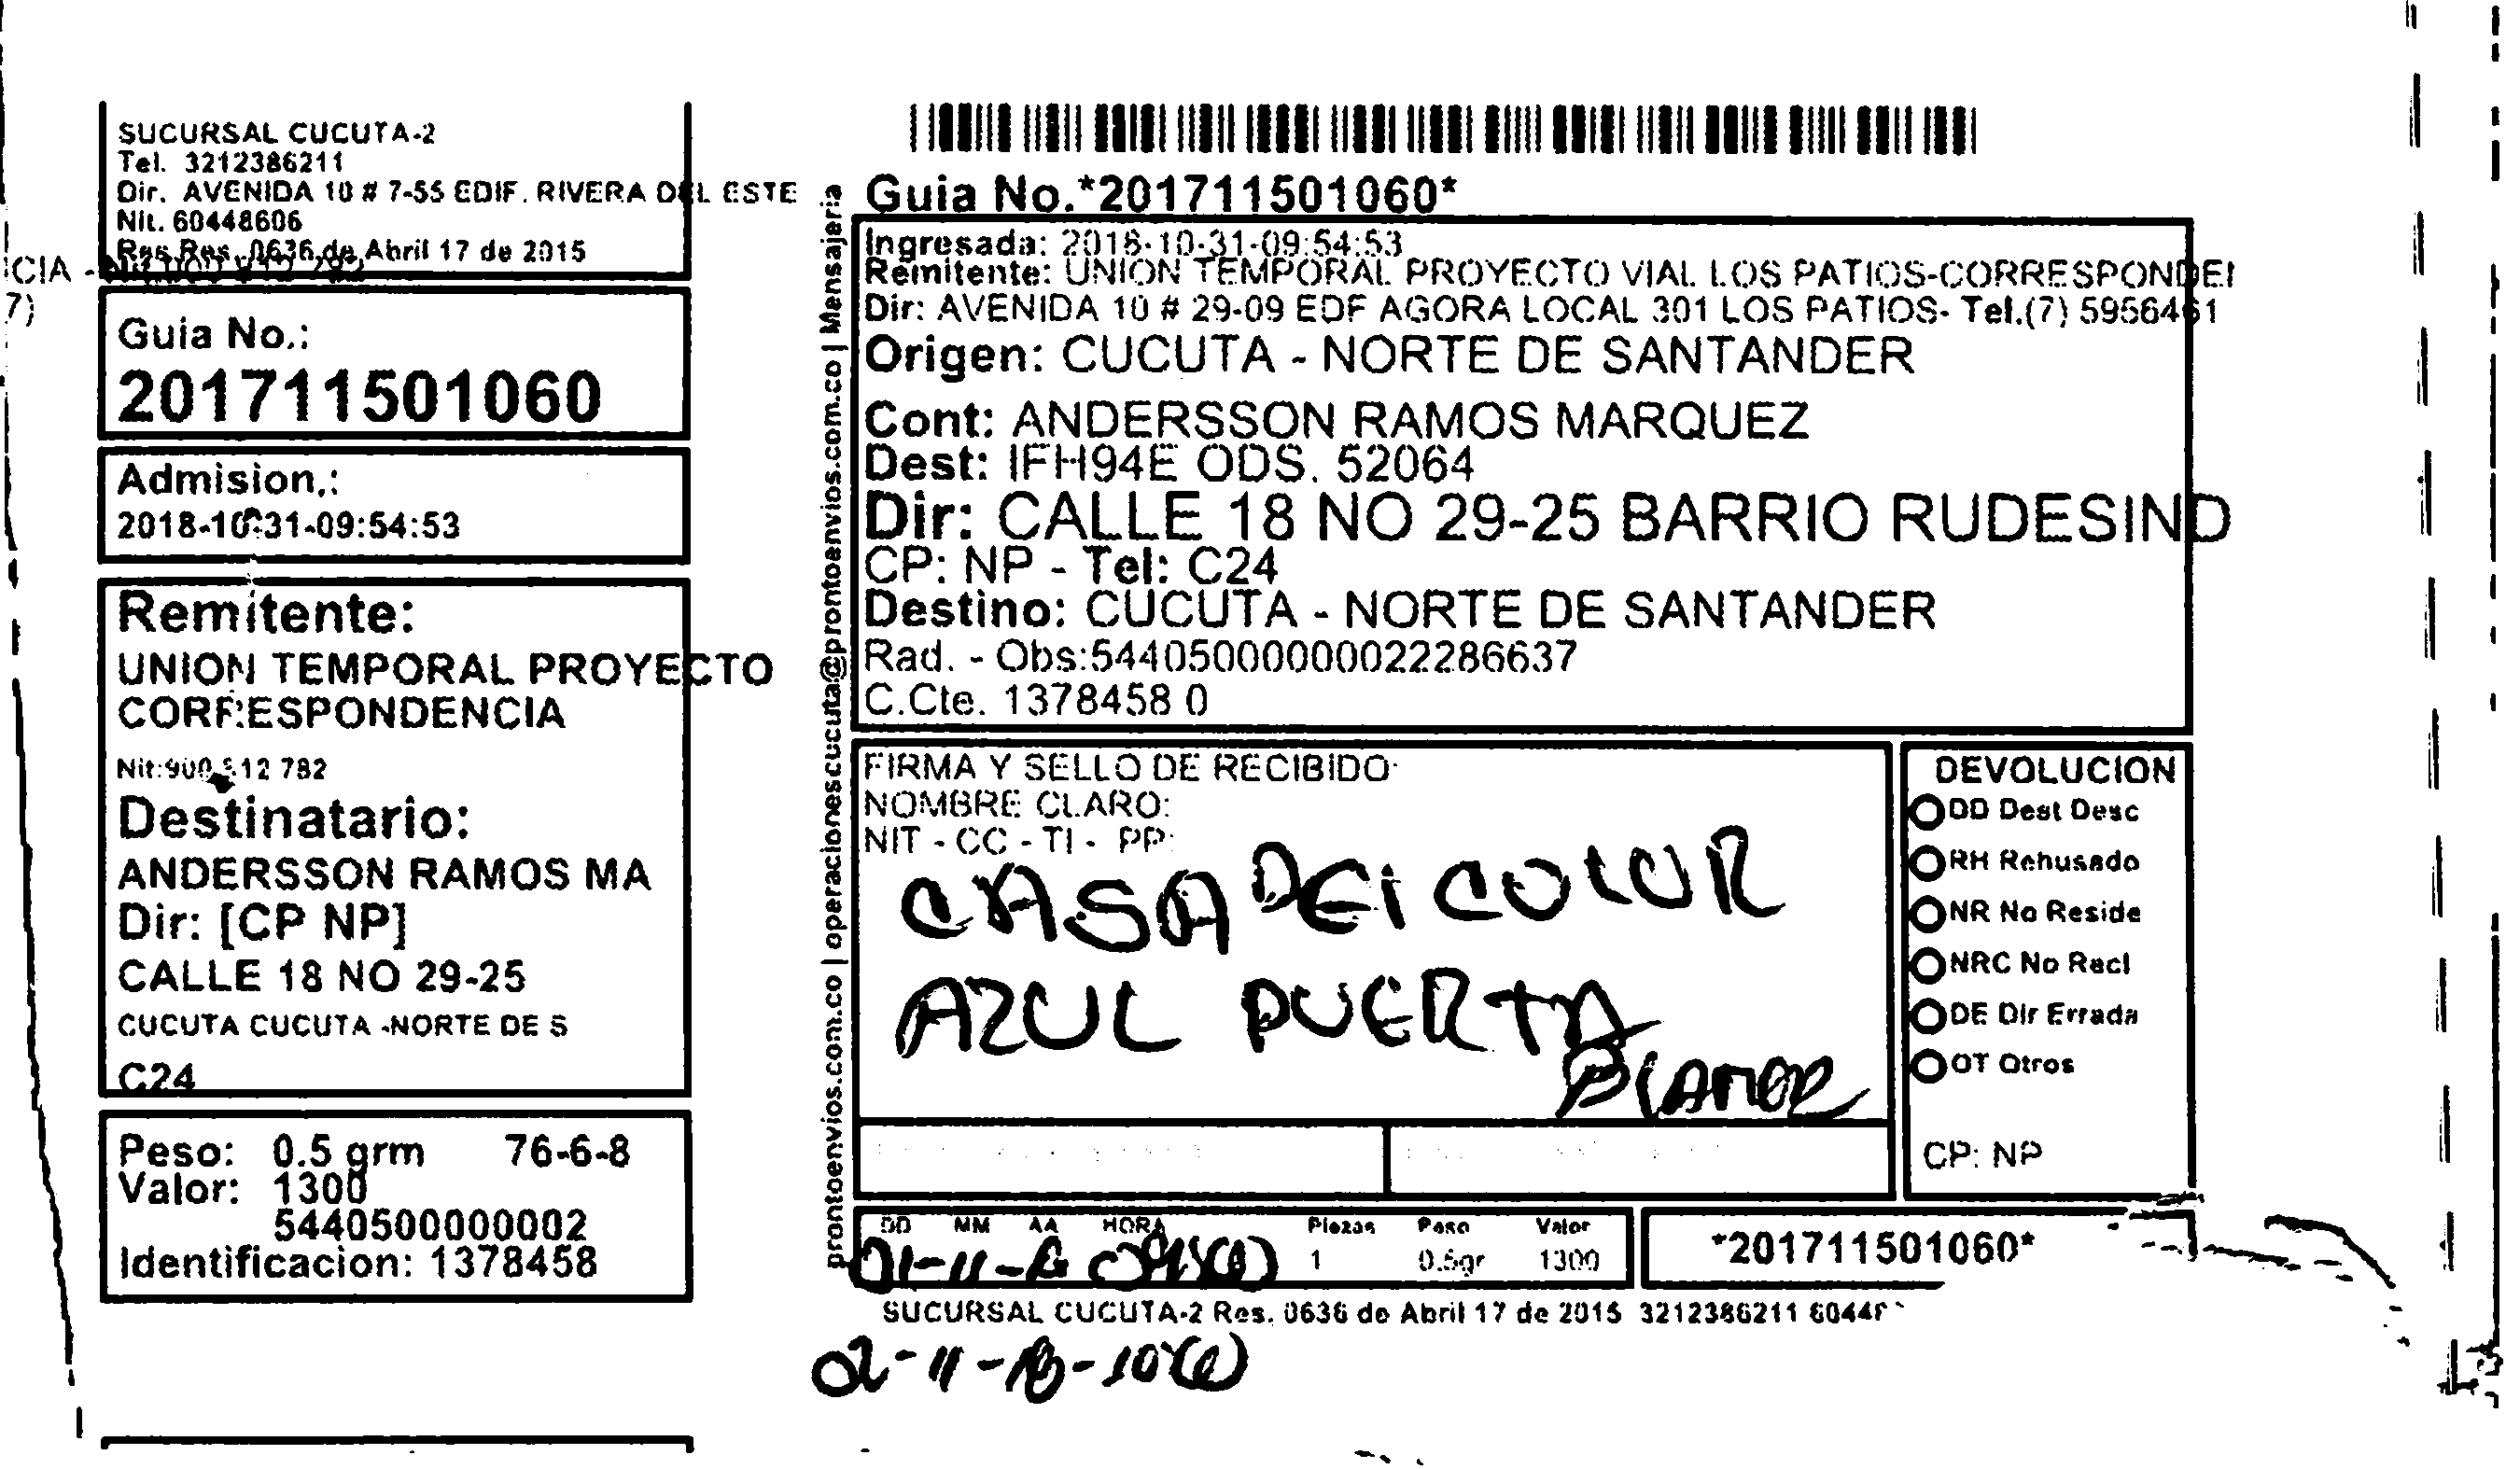 SUCURSAL CUCUTA-2
Tel. 3212386211
Dir. AVENIDA 10 # 7-55 EDIF. RIVERA DEL ESTE
Nit. 60448606
Res.Res. 0636 de Abril 17 de 2015
CIA -
7)
Guia No.:
201711501060
Admision.:
2018-10-31-09:54:53
Remitente:
UNION TEMPORAL PROYECTO
CORRESPONDENCIA
Nit:900 512 782
Destinatario:
ANDERSSON RAMOS MA
Dir: [CP NP]
CALLE 18 NO 29-25
CUCUTA CUCUTA -NORTE DE S
C24
Peso: 0.5 grm 76-6-8
Valor: 1300
5440500000002
Identificacion: 1378458
prontoenvios.com.co | operacionescucuta@prontoenvios.com.co | Mensajeria
Guia No.*201711501060*
Ingresada: 2018-10-31-09:54:53
Remitente: UNION TEMPORAL PROYECTO VIAL LOS PATIOS-CORRESPONDEI
Dir: AVENIDA 10 # 29-09 EDF AGORA LOCAL 301 LOS PATIOS- Tel.(7) 5956461
Origen: CUCUTA - NORTE DE SANTANDER
Cont: ANDERSSON RAMOS MARQUEZ
Dest: IFH94E ODS. 52064
Dir: CALLE 18 NO 29-25 BARRIO RUDESIND
CP: NP - Tel: C24
Destino: CUCUTA - NORTE DE SANTANDER
Rad. - Obs:544050000000022286637
C.Cte. 1378458 0
FIRMA Y SELLO DE RECIBIDO:
NOMBRE CLARO:
NIT - CC - TI - PP:
CASA DEl COLOR
AZUL PUERTA
BLANCA
DEVOLUCION
DD Dest Desc
RH Rehusado
NR No Reside
NRC No Recl
DE Dir Errada
OT Otros
CP: NP
DD MM AA HORA Piezas Peso Valor
1 0.5gr 1300
*201711501060*
SUCURSAL CUCUTA-2 Res. 0636 de Abril 17 de 2015 3212386211 6044
02-11-18-10